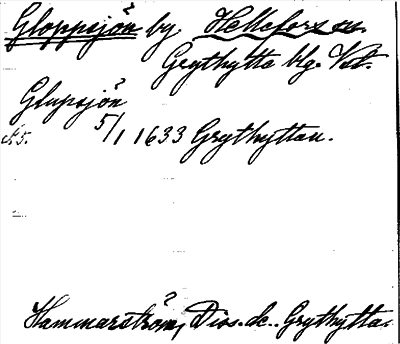 Gloppsjön by Hellefors sn.
Grythytte blg. Vstm.
Glupsjön
5/1 1633 Grythyttan.
Hammarström, Dios. de. Grythytta.